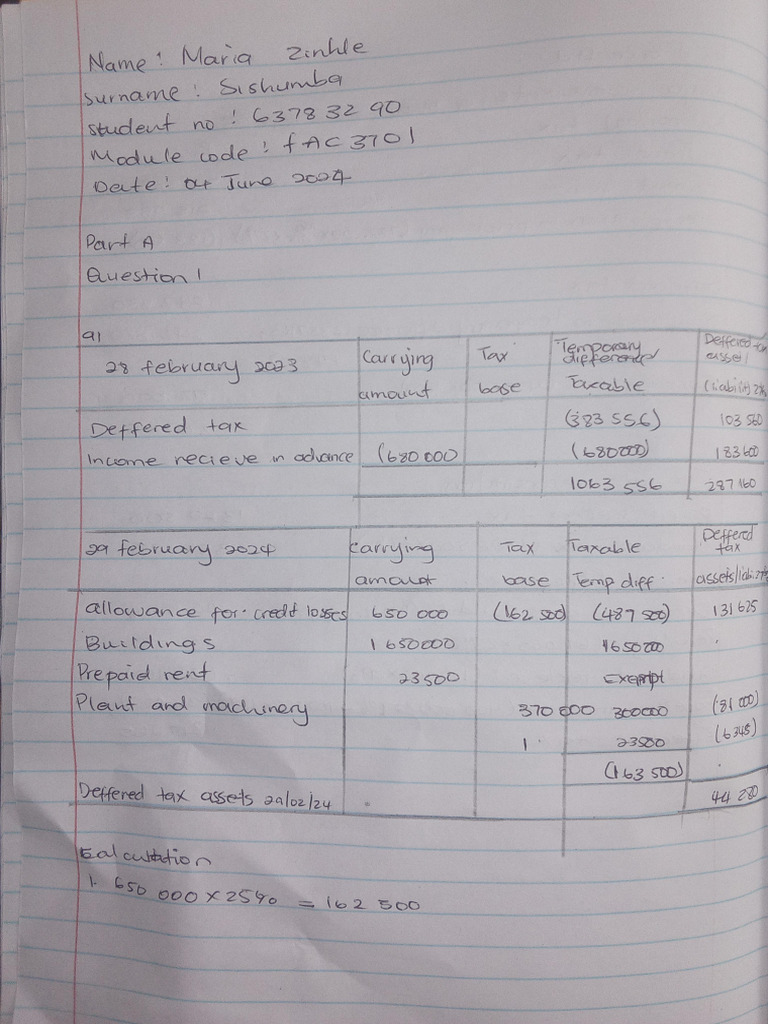 Name: Maria Zinhle
Surname: Sishumba
Student no: 6378 32 90
Module code: fAC 3701
Date: 04 June 2024
Part A
Question 1
a)
28 february 2023 | Carrying amount | Tax base | Temporary difference Taxable | Deffered tax asset/ (liability)
Deffered tax (383 556) 103 560
Income recieve in advance (680 000) (680000) 183 600
1063 556 287 160
29 february 2024 | Carrying amount | Tax base | Taxable Temp diff. | Deffered tax
allowance for credit losses 650 000 (162 500) (487 500) 131 625
Buildings 1 650000 1650000
Prepaid rent 23500 Exempt
Plant and machinery 370 000 300000 (81 000)
1. 23500 (6345)
(163 500)
Deffered tax assets 29/02/24 44 280
Calculation
1. 650 000 x 25% = 162 500